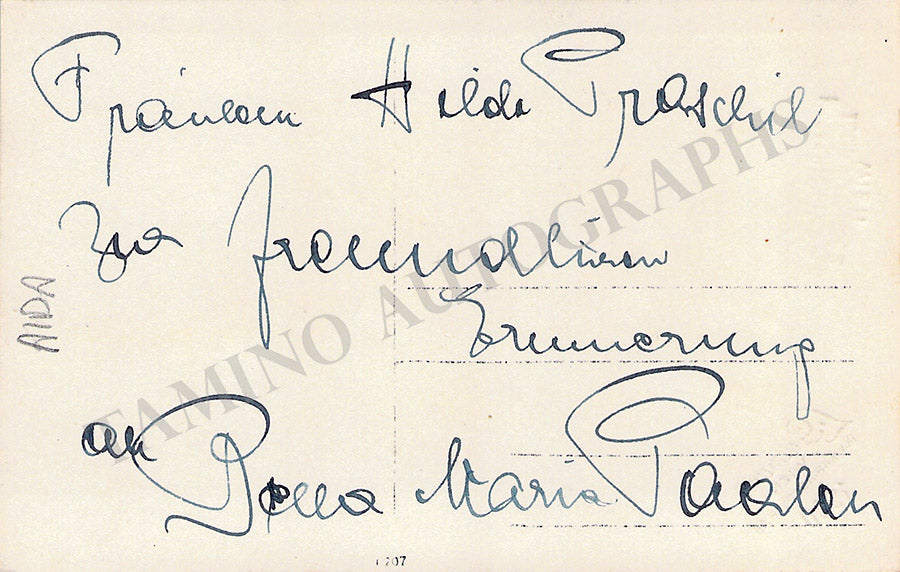 Fräulein Hilde Praschil
Zur freundlichen
Erinnerung
an Bella Maria Paalen
AIDA
TAMINO AUTOGRAPHS
1207